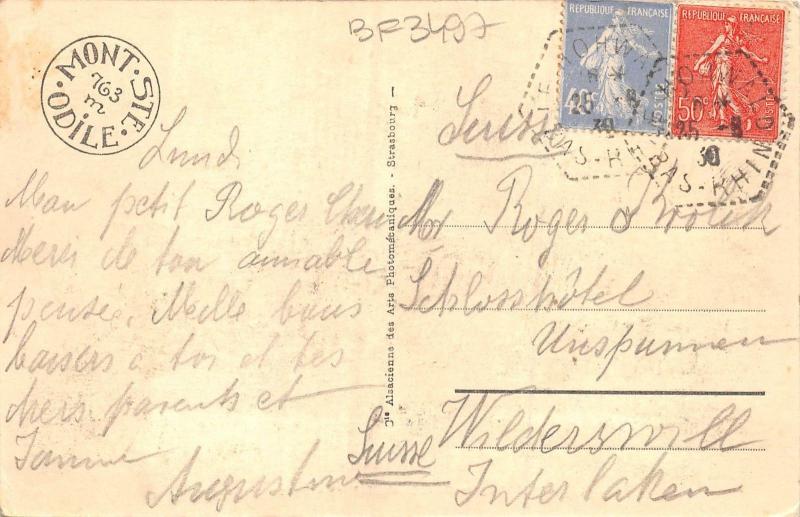 BF3497
MONT·STE·ODILE·
763
m
REPUBLIQUE FRANÇAISE
40c POSTES
REPUBLIQUE FRANÇAISE
50c POSTES
25 -8
30
BAS-RHIN
25 -8
30
BAS-RHIN
Lundi
Mon petit Roger Cheri
Merci de ton aimable
pensée, Mille bons
baisers à toi et tes
chers parents et
Augustine
Cie Alsacienne des Arts Photomécaniques. - Strasbourg
Suisse
Mr Roger
Schlosshôtel
Unspunnen
Wilderswill
Interlaken
Suisse